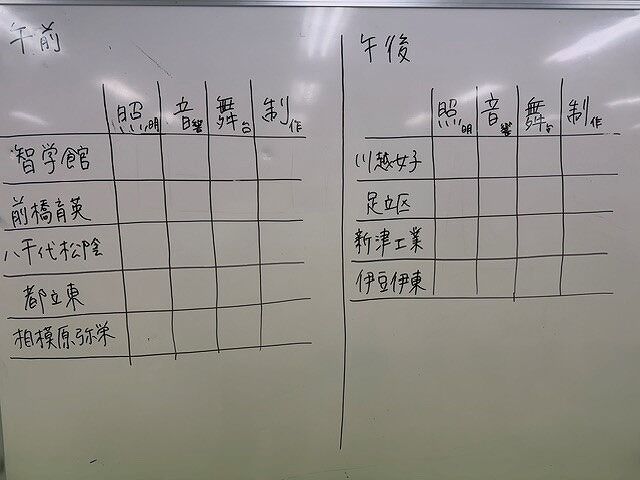 午前
照明 音響 舞台 制作
智学館
前橋育英
八千代松陰
都立東
相模原弥栄
午後
照明 音響 舞台 制作
川越女子
足立区
新津工業
伊豆伊東